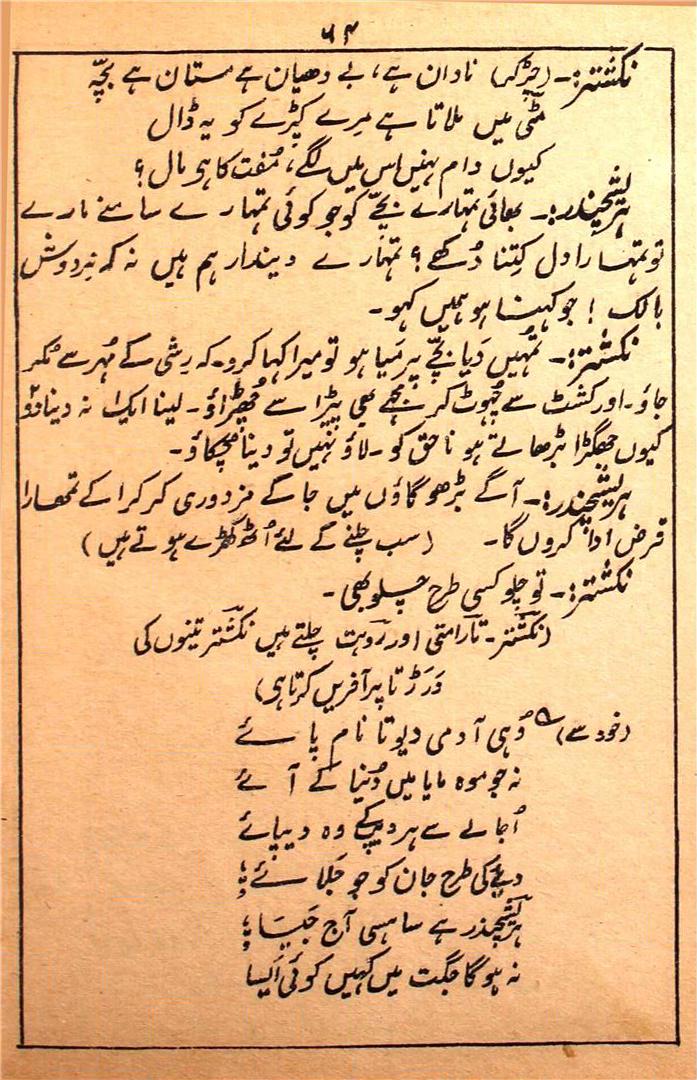 ۶۴
نکشتر:۔ (چڑکر) نادان ہے، بے دھیان ہے مستان ہے بچّہ
مٹی میں ملاتا ہے مرے کپڑے کو یہ ڈال
کیوں دام نہیں اس میں لگے، مُفت کا ہی مال؟
ہریشچندر:۔ بھائی تمہارے بچّے کو جو کوئی تمہارے سامنے مارے
تو تمہارا دل کِتنا دُکھے؟ تمہارے دیندار ہم ہیں نہ کہ نردوش
بالک! جو کہنا ہو ہمیں کہو۔
نکشتر:۔ تمہیں دَیا بچّے پر میا ہو تو میرا کہا کرو۔ کہ رِشی کے مُہر سے مُکر
جاؤ۔ اور کشٹ سے چُھوٹ کر مجھے بھی پیڑا سے چُھڑاؤ۔ لینا ایک نہ دینا دو
کیوں جھگڑا بڑھاتے ہو ناحق کو۔ لاؤ نہیں تو دینا چُکاؤ۔
ہریشچندر:۔ آگے بڑھو گاؤں میں جا کے مزدوری کر کرا کے تمھارا
قرض ادا کروں گا۔ (سب چلنے کے لئے اُٹھ کھڑے ہوتے ہیں)
نکشتر:۔ تو چلو کسی طرح چلو بھی۔
(نکشتر۔ تارامتی اور روہت چلتے ہیں نکشتر تینوں کی
دَرَڑتا پر آفریں کرتا ہی)
(خود سے) وُہی آدمی دیوتا نام پائے
نہ جو موہ مایا میں دُنیا کے آئے
اُجالے سے ہردیکے وہ دیپائے
دیئے کی طرح جان کو جو جَلائے
ہریشچندر ہے ساہسی آج جَیسَا
نہ ہوگا جگت میں کہیں کوئی اَیسا